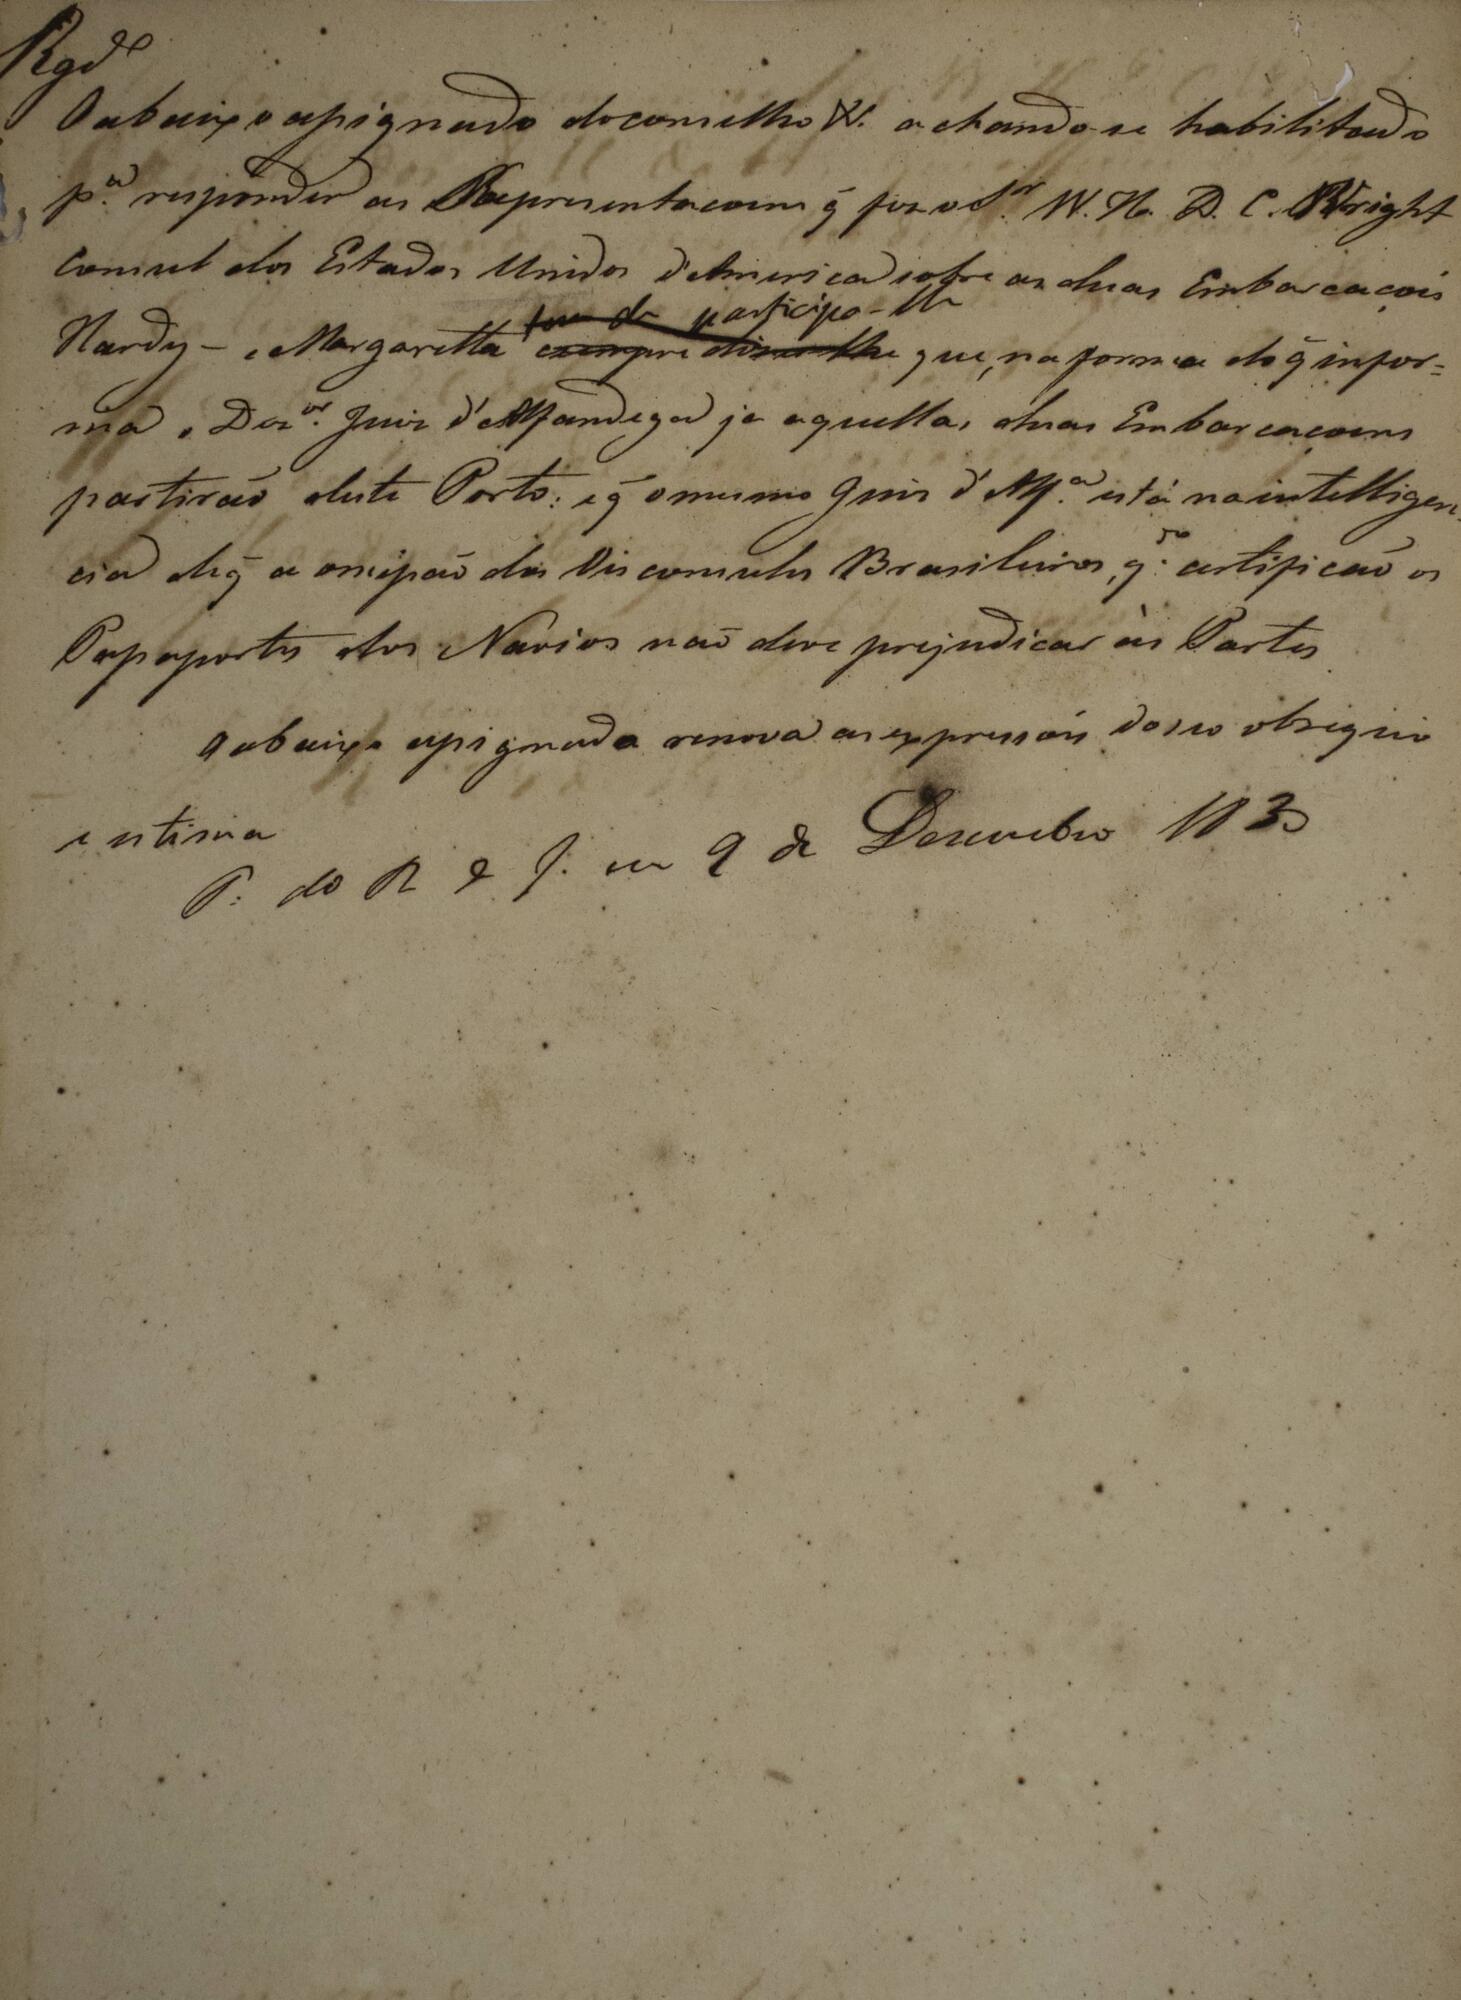 Rgd.º
O abaixo assignado do conselho &. achando-se habilitado
p.ª responder as Representacoens q̃ fez o S.r W. H. D. C. Wright
Consul dos Estados Unidos d'America sobre as duas Embarcaçois
participa-lhe
Hardy - e Margaretta cumpre dizer lhe que, na forma do q̃ infor=
ma o Dez.or Juiz d'Alfandega ja aquellas duas Embarcacoens
partirão deste Porto: e q̃ o mesmo Juiz d'Alf.ª está na intelligen
cia de q̃ a omissão dos Visconsules Brasileiros, q.do certificão os
Passaportes dos Navios não deve prejudicar às Partes
O abaixo assignado renova as expressõis do seo obsequio
e estima
P. do R de J. em 9 de Dezembro 183